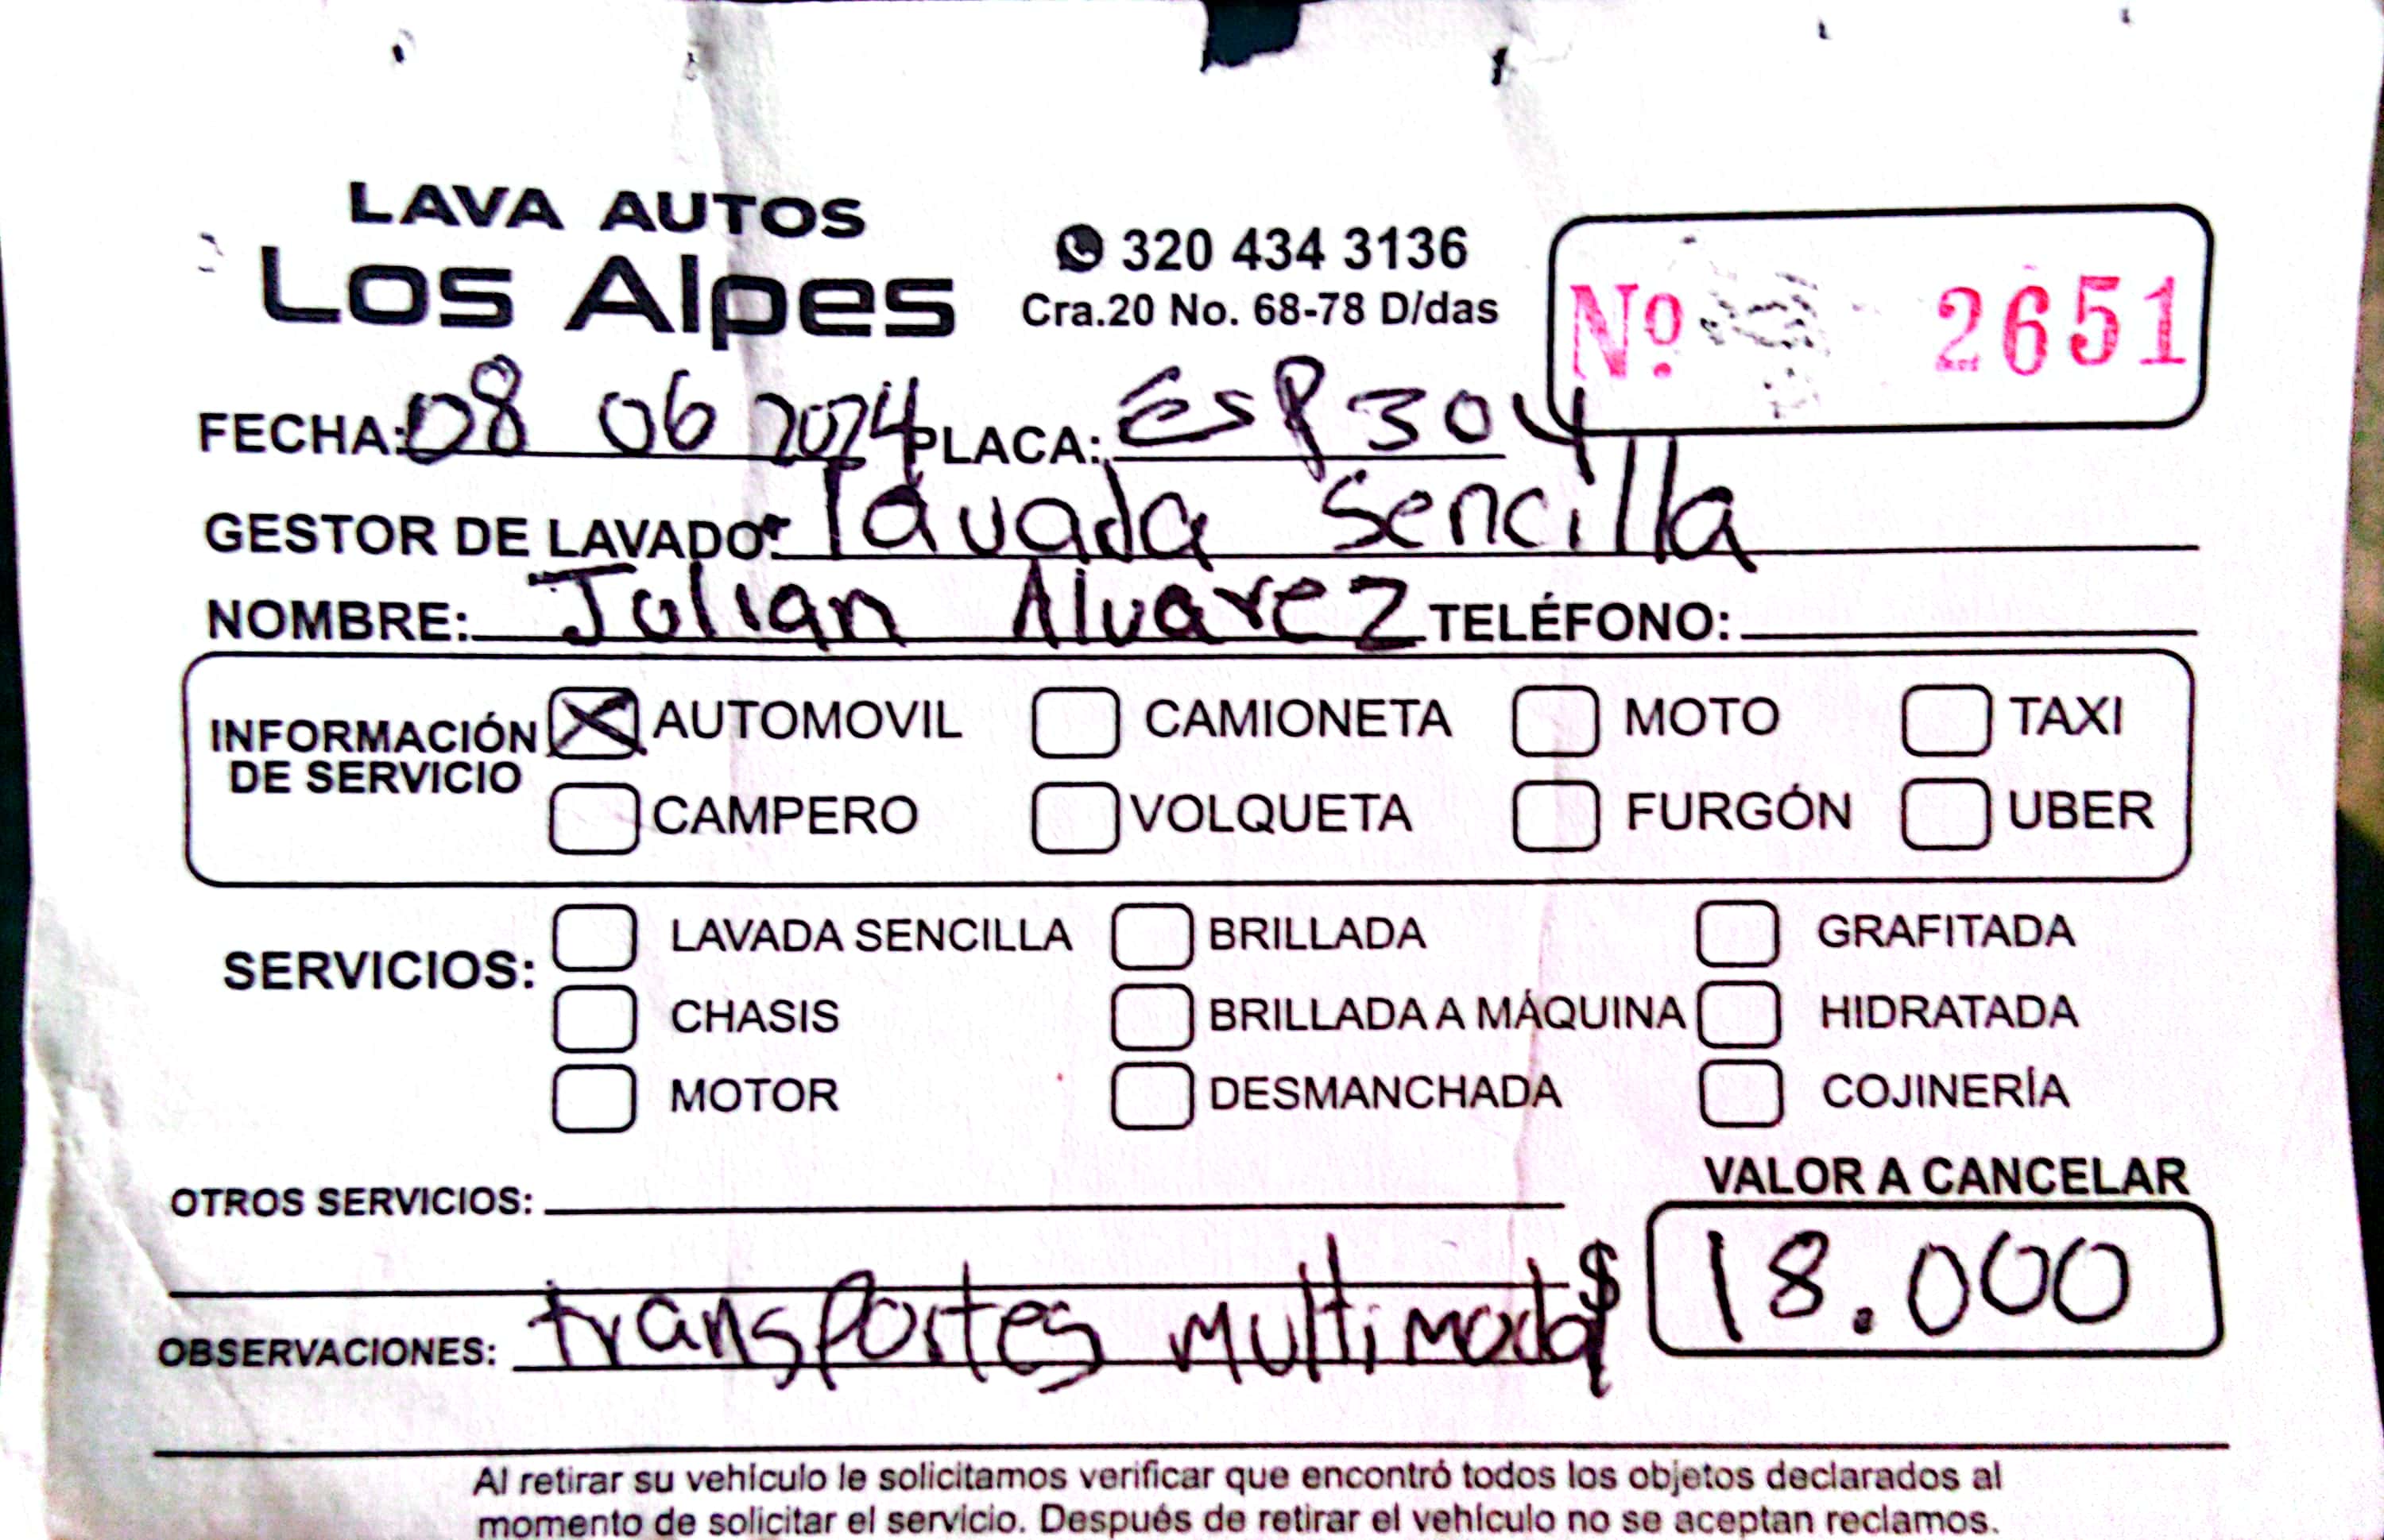 LAVA AUTOS
Los Alpes
320 434 3136
Cra.20 No. 68-78 D/das
Nº 2651
FECHA: 08 06 2024 PLACA: ESP304
GESTOR DE LAVADO: lavada sencilla
NOMBRE: Julian Alvarez TELÉFONO:
INFORMACIÓN DE SERVICIO
AUTOMOVIL CAMIONETA MOTO TAXI
CAMPERO VOLQUETA FURGÓN UBER
SERVICIOS:
LAVADA SENCILLA BRILLADA GRAFITADA
CHASIS BRILLADA A MÁQUINA HIDRATADA
MOTOR DESMANCHADA COJINERÍA
OTROS SERVICIOS:
VALOR A CANCELAR
$ 18.000
OBSERVACIONES: transportes multimodal
Al retirar su vehículo le solicitamos verificar que encontró todos los objetos declarados al
momento de solicitar el servicio. Después de retirar el vehículo no se aceptan reclamos.